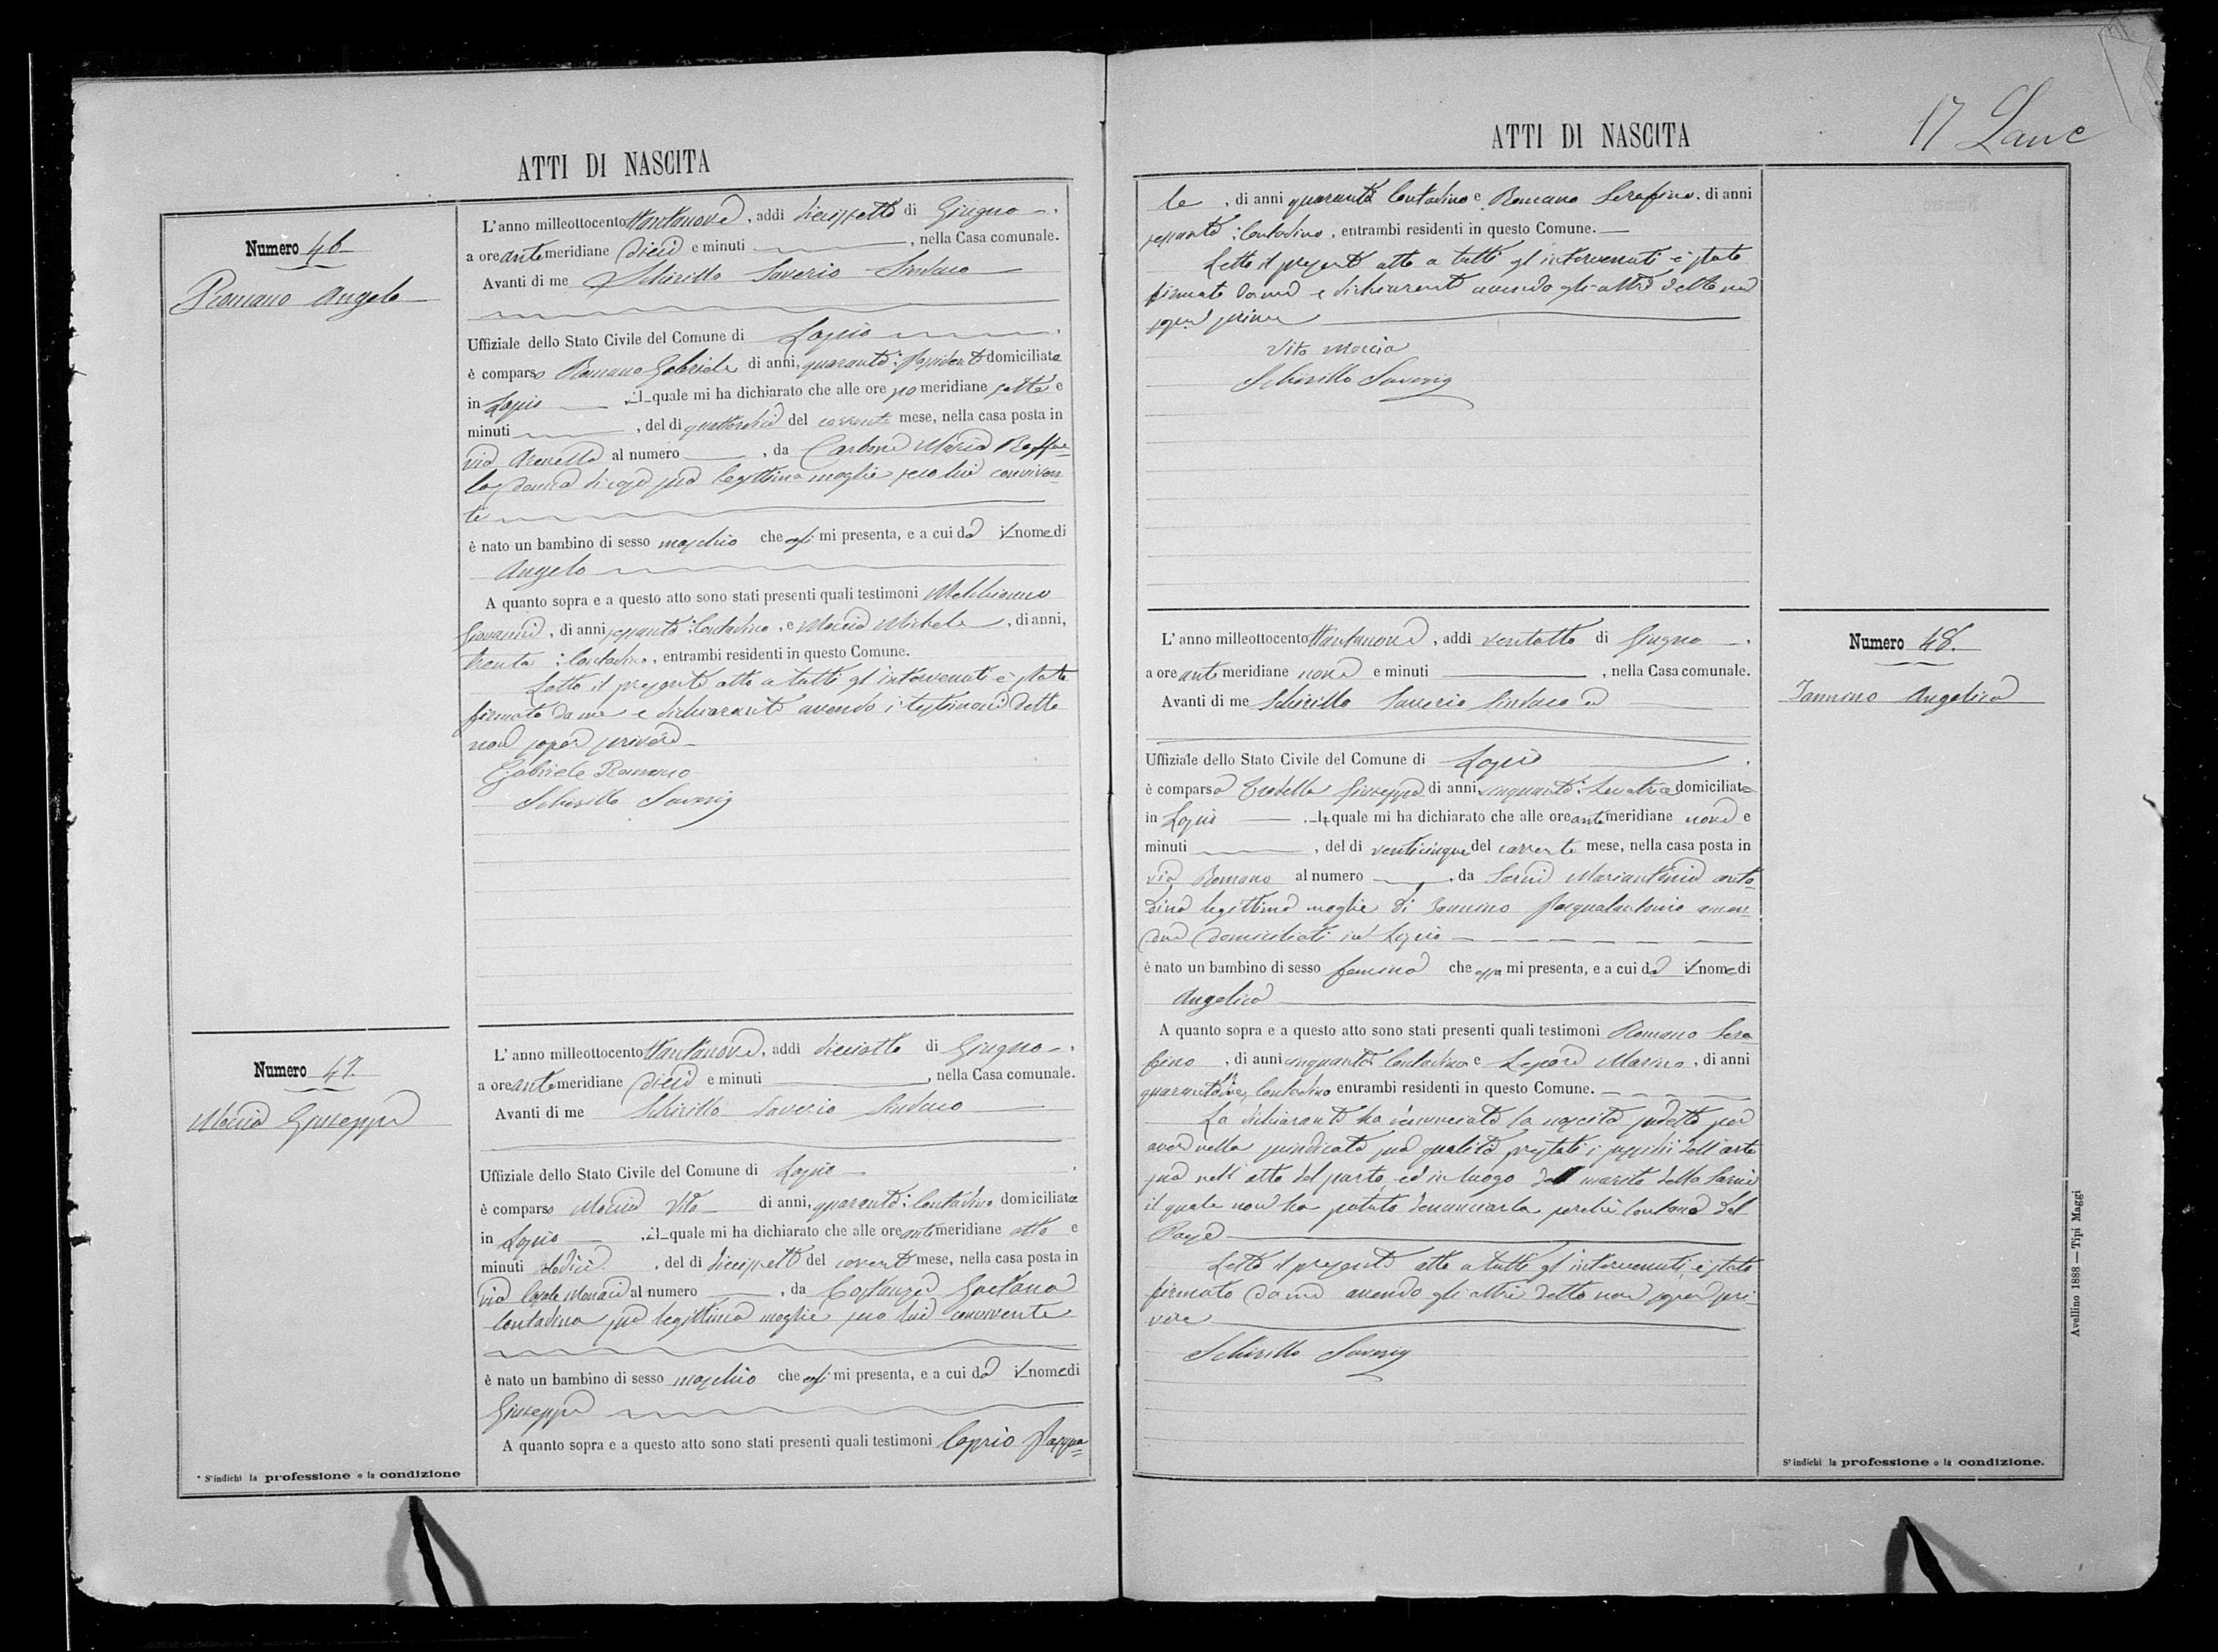 ATTI DI NASCITA
Numero 46
Romano Angelo
L'anno milleottocentottantanove, addì diciassette di Giugno
a ore antemeridiane dieci e minuti , nella Casa comunale.
Avanti di me Schirillo Saverio Sindaco
Uffiziale dello Stato Civile del Comune di Lapio
è comparso Romano Gabriele di anni, quaranta: domiciliato
in Lapio , il quale mi ha dichiarato che alle ore po meridiane sette e
minuti , del dì quattordici del corrente mese, nella casa posta in
via al numero , da Carbone Maria Raffae
la donna di casa sua legittima moglie seco lui conviven
te
è nato un bambino di sesso maschio che egli mi presenta, e a cui dà il nome di
Angelo
A quanto sopra e a questo atto sono stati presenti quali testimoni
Giovanni, di anni sessanta: Contadino, e Moccia Michele, di anni,
trenta: Contadino, entrambi residenti in questo Comune.
Letto il presente atto a tutti gl'intervenuti è stato
firmato da me e dichiarante avendo i testimoni detto
non saper scrivere
Gabriele Romano
Schirillo Saverio
Numero 47.
Moccia Giuseppe
L'anno milleottocentottantanove, addì dieciotto di Giugno
a ore antemeridiane dieci e minuti , nella Casa comunale.
Avanti di me Schirillo Saverio Sindaco
Uffiziale dello Stato Civile del Comune di Lapio
è comparso Moccia Vito di anni, quaranta: Contadino domiciliato
in Lapio , il quale mi ha dichiarato che alle ore antemeridiane otto e
minuti , del dì diciassette del corrente mese, nella casa posta in
via al numero , da Costanza Gaetana
Contadina sua legittima moglie seco lui convivente
è nato un bambino di sesso maschio che egli mi presenta, e a cui dà il nome di
Giuseppe
A quanto sopra e a questo atto sono stati presenti quali testimoni Caprio Pasqua
* S'indichi la professione o la condizione
ATTI DI NASCITA
17
le, di anni quaranta Contadino e Romano Serafino, di anni
sessanta: Contadino, entrambi residenti in questo Comune.
Letto il presente atto a tutti gl'intervenuti è stato
firmato da me e dichiarante avendo gli altri detto non
Vito Moccia
Schirillo Saverio
Numero 48.
Iannino Angelica
L'anno milleottocentottantanove, addì ventotto di Giugno
a ore antemeridiane nove e minuti , nella Casa comunale.
Avanti di me Schirillo Saverio Sindaco
Uffiziale dello Stato Civile del Comune di Lapio
è comparsa Giuseppa di anni cinquanta: Levatrice domiciliata
in Lapio , la quale mi ha dichiarato che alle ore antemeridiane nove e
minuti , del dì venticinque del corrente mese, nella casa posta in
via Romano al numero , da Mariantonia conta
dina legittima moglie di Iannino Pasqualantonio amen
due domiciliati in Lapio
è nato un bambino di sesso femina che essa mi presenta, e a cui dà il nome di
Angelica
A quanto sopra e a questo atto sono stati presenti quali testimoni Romano Sera
fino, di anni cinquanta: Contadino e Lepore Marino, di anni
Contadino entrambi residenti in questo Comune.
La dichiarante ha denunciato la nascita sudetta per
aver nella suindicata sua qualità prestati i sussidii dell'arte
sua nell'atto del parto, ed in luogo del marito della
il quale non ha potuto denunciarla perchè lontano dal
Paese
Letto il presente atto a tutti gl'intervenuti, è stato
firmato da me avendo gli altri detto non saper scri
vere
Schirillo Saverio
S'indichi la professione o la condizione.
Avellino 1888 — Tipi Maggi